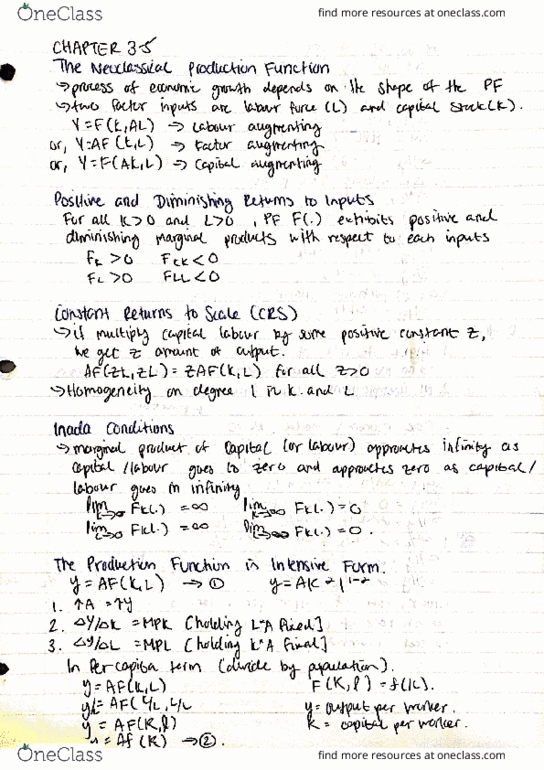 OneClass
find more resources at oneclass.com
CHAPTER 3-5
The Neoclassical Production Function
→process of economic growth depends on the shape of the PF
→two factor inputs are labour force (L) and capital stock(K).
Y=F(K,AL) → Labour augmenting
or, Y=AF(K,L) → Factor augmenting
or, Y=F(AK,L) → Capital augmenting
Positive and Diminishing Returns to Inputs
For all K>0 and L>0, PF F(.) exhibits positive and
diminishing marginal products with respect to each inputs
FK >0 FKK <0
FL >0 FLL <0
Constant Returns to Scale (CRS)
→if multiply capital labour by some positive constant z,
we get z amount of output.
AF(ZK,ZL) = ZAF(K,L) for all Z>0
→Homogeneity on degree 1 in K and L
Inada Conditions
→marginal product of capital (or labour) approaches infinity as
capital/labour goes to zero and approaches zero as capital/
labour goes in infinity
lim FK(.) = ∞ lim FK(.) = 0
lim FL(.) = ∞ lim FL(.) = 0.
The Production Function in Intensive Form.
y = AF(K,L) → ①
1. ↑A = ↑y
2. Δy/ΔK = MPK [holding L+A fixed]
3. Δy/ΔL = MPL [holding K+A final]
In Per capita term (divide by population).
y = AF(K,L) F(K,l) = f(K).
y = output per worker.
y = AF(K,l) K = capital per worker.
y = Af(K) → ②.
OneClass
find more resources at oneclass.com